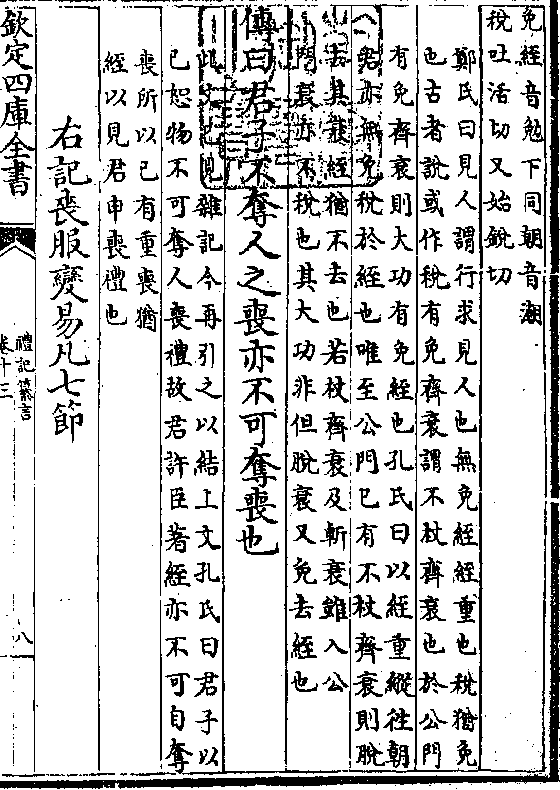 免絰音勉下同朝音潮
税吐活切又始鋭切
鄭氏曰見人謂行求見人也無免絰絰重也税猶免
也古者説或作税有免齊衰謂不杖齊衰也於公門
有免齊衰則大功有免絰也孔氏曰以絰重縱徃朝
君亦無免税於絰也唯至公門已有不杖齊衰則脫
去其衰絰猶不去也若杖齊衰及斬衰雖入公
門衰亦不税也其大功非但脫衰又免去絰也
傳曰君子不奪人之喪亦不可奪喪也
此文已見雜記今再引之以結上文孔氏曰君子以
已恕物不可奪人喪禮故君許臣著絰亦不可自奪
喪所以已有重喪猶
絰以見君申喪禮也
右記喪服變易凡七節
欽定四庫全書
禮記纂言
卷十三
八